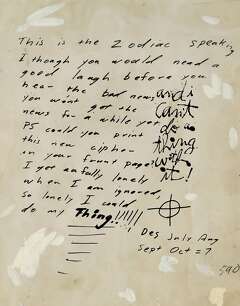 This is the Zodiac speaking
I though you would need a
good laugh before you
hear the bad news
you wont get the
news for a while yet
PS could you print
this new cipher
in your frunt page?
I get awfully lonely
when I am ignored,
so lonely I could
do my Thing!!!!!!
and i
can't
do a
thing
with
it!
Des July Aug
Sept Oct = 7